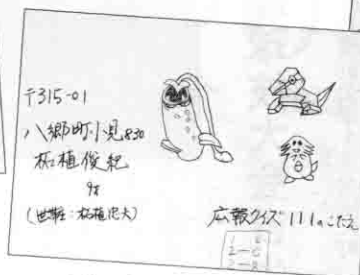 〒315-01
八郷町小見830
柘植俊紀
9才
(世帯主:柘植忠夫)
広報クイズ111のこたえ